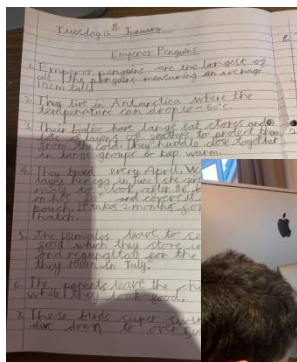 Tuesday 12th January
Emperor Penguins
1. Emperor penguins are the largest of
all the penguins measuring an average
115cm tall.
2. They live in Antarctica where the
temperature can drop to -60°c.
3. Their bodies have large fat stores and
layers of feathers to protect them
from the cold. They huddle close together
in large groups to keep warm.
4. They breed every April. W
lays her egg in June she gives
male to look after. He
on his feet and covers it
pouch. It takes 2 months for
hatch.
5. The females leave to se
food which they store in
and regurgitate for the
they return in July.
6. The parents leave the chi
while they look food.
7. These birds super swim
dive down to over 50